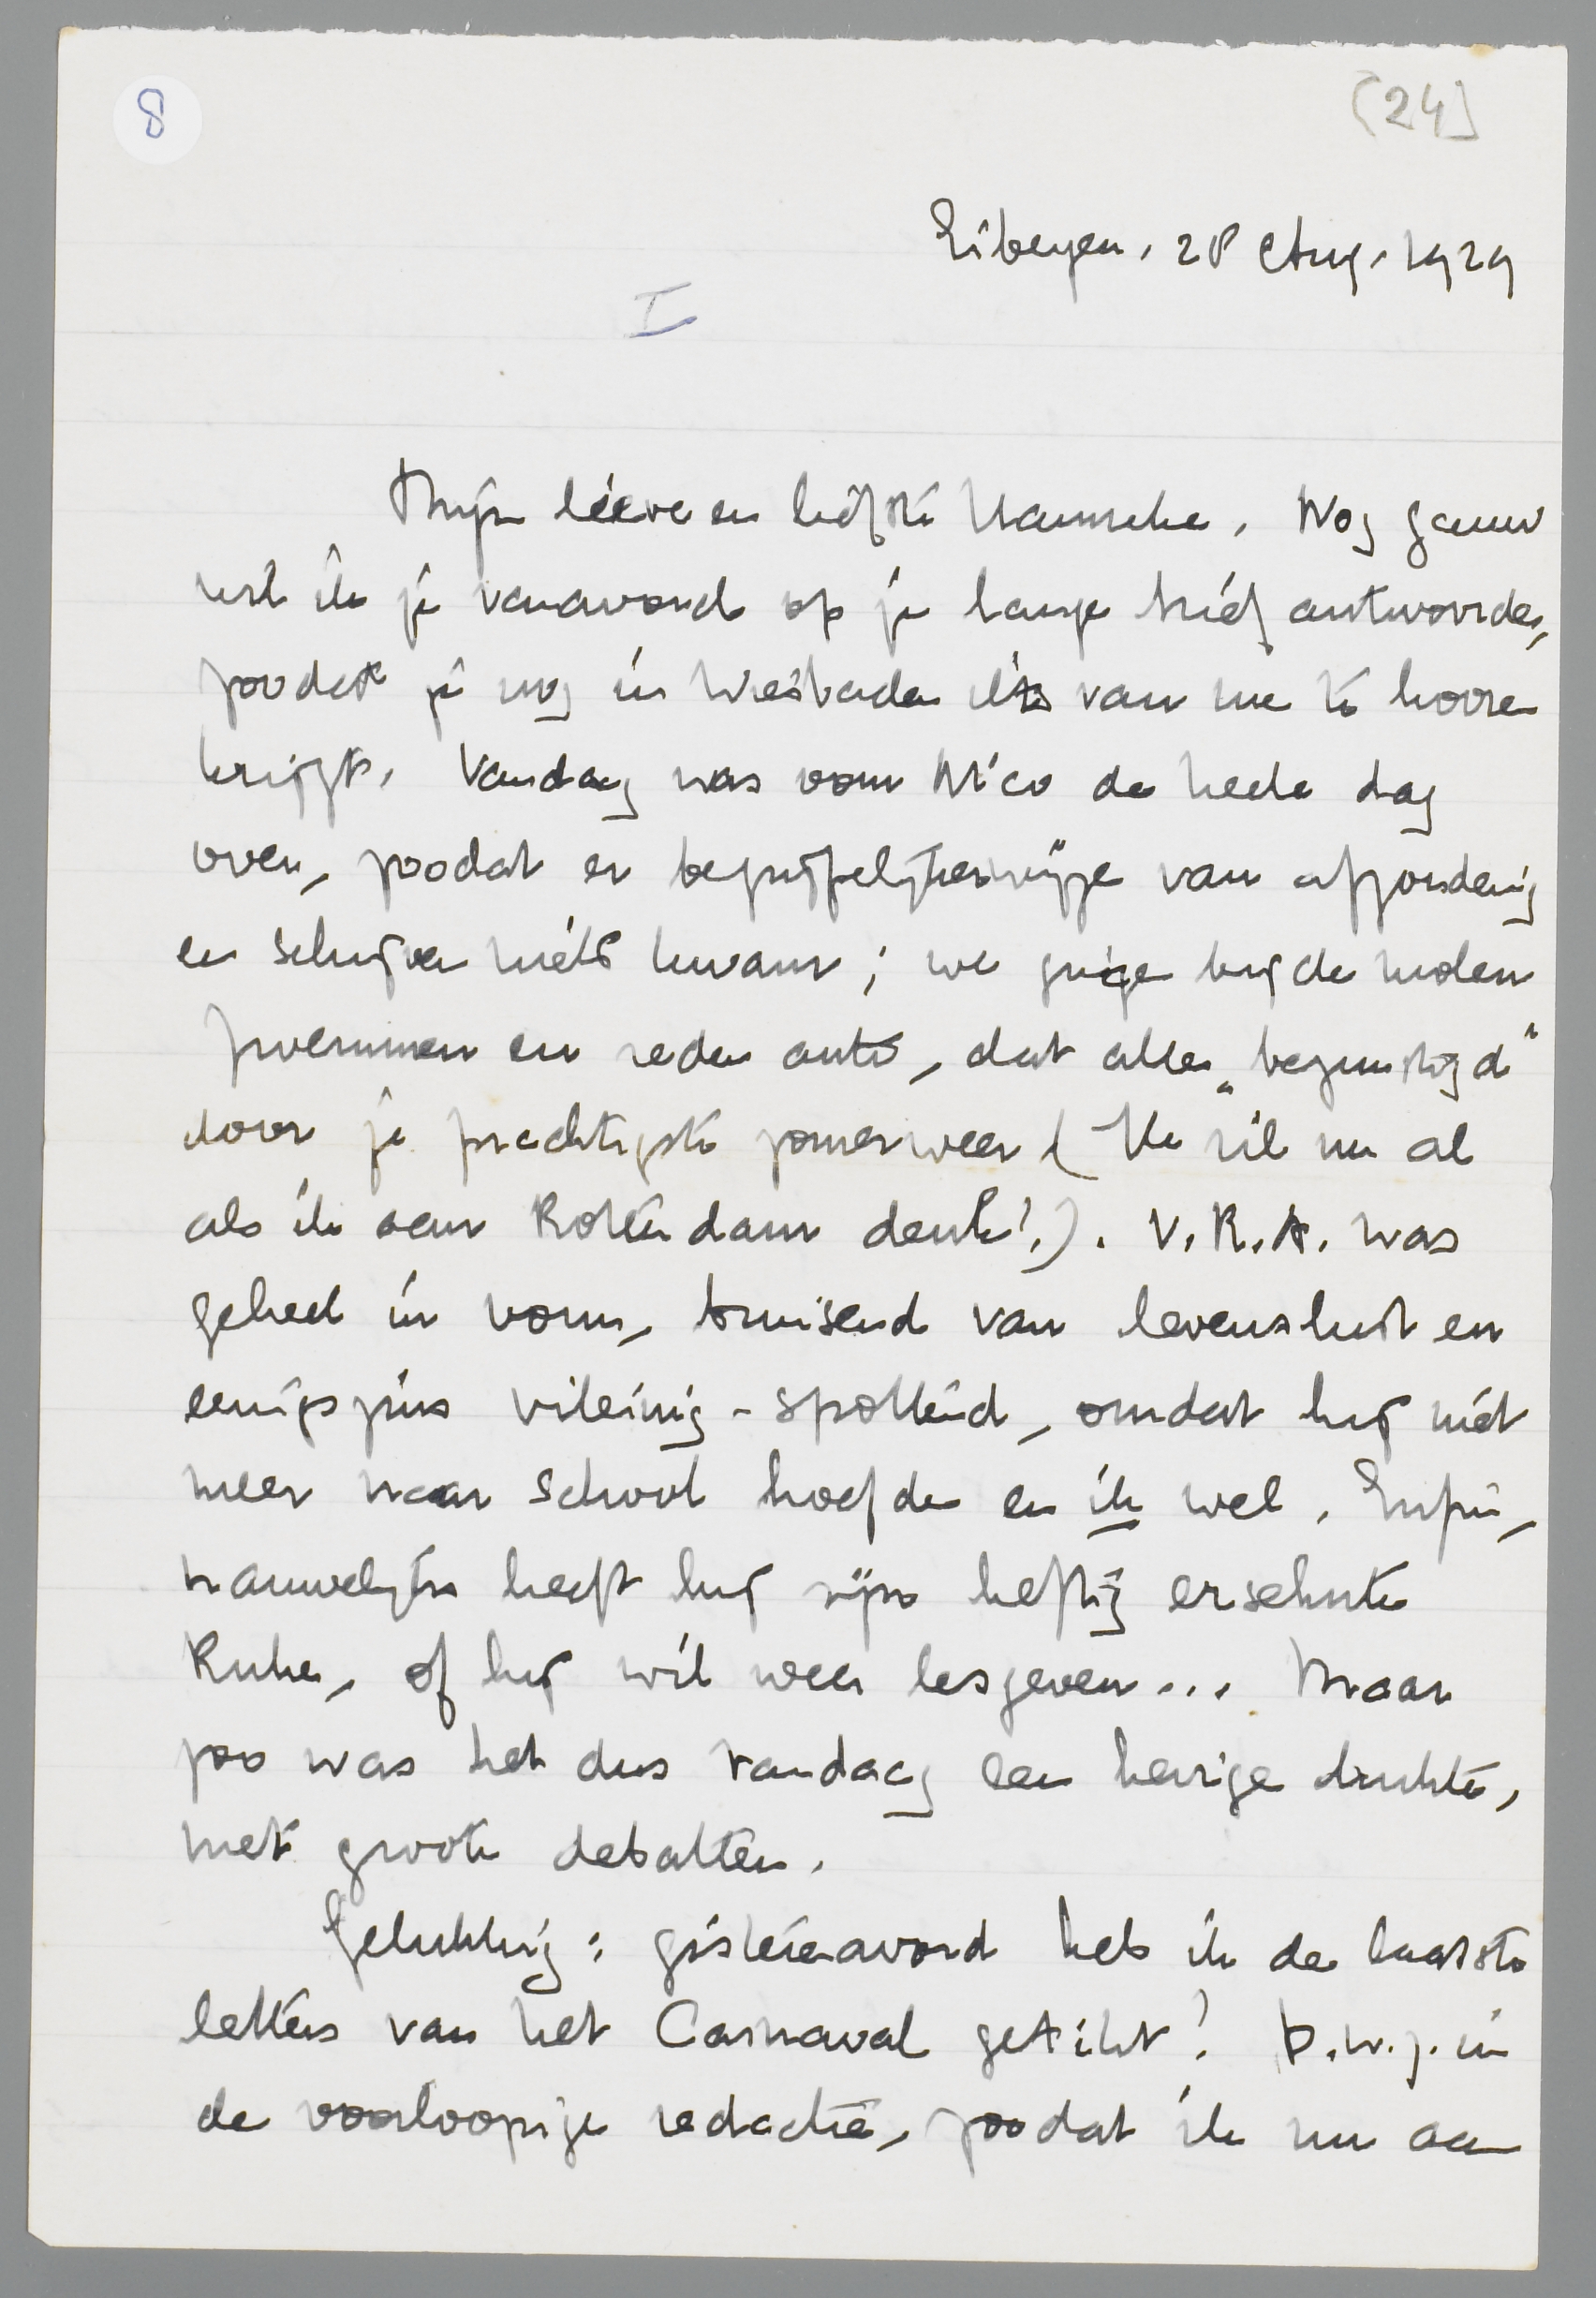 8
[24]
Eibergen, 28 Aug. 1929
I
Mijn lieve en liefste Hanneke. Nog gauw
wil ik je vanavond op je lange brief antwoorden,
zoodat je nog in Wiesbaden iets van me te hooren
krijgt. Vandaag was oom Nico de heele dag
over, zoodat er begrijpelijkerwijze van afzondering
en schrijven niets kwam; we gingen bij de molen
zwemmen en reden auto, dat alles „begunstigd"
door je prachtigste zomerweer (Ik ril nu al
als ik aan Rotterdam denk!). V.R.A. was
geheel in vorm, bruisend van levenslust en
eenigszins vileinig-spottend, omdat hij niet
meer naar school hoefde en ik wel. Enfin,
nauwelijks heeft hij zijn heftig ersehnte
Ruhe, of hij wil weer lesgeven... Maar
zoo was het dus vandaag een hevige drukte,
met groote debatten.
Gelukkig: gisterenavond heb ik de laatste
letters van het Carnaval getikt! D.w.z. in
de voorloopige redactie, zoodat ik nu aan